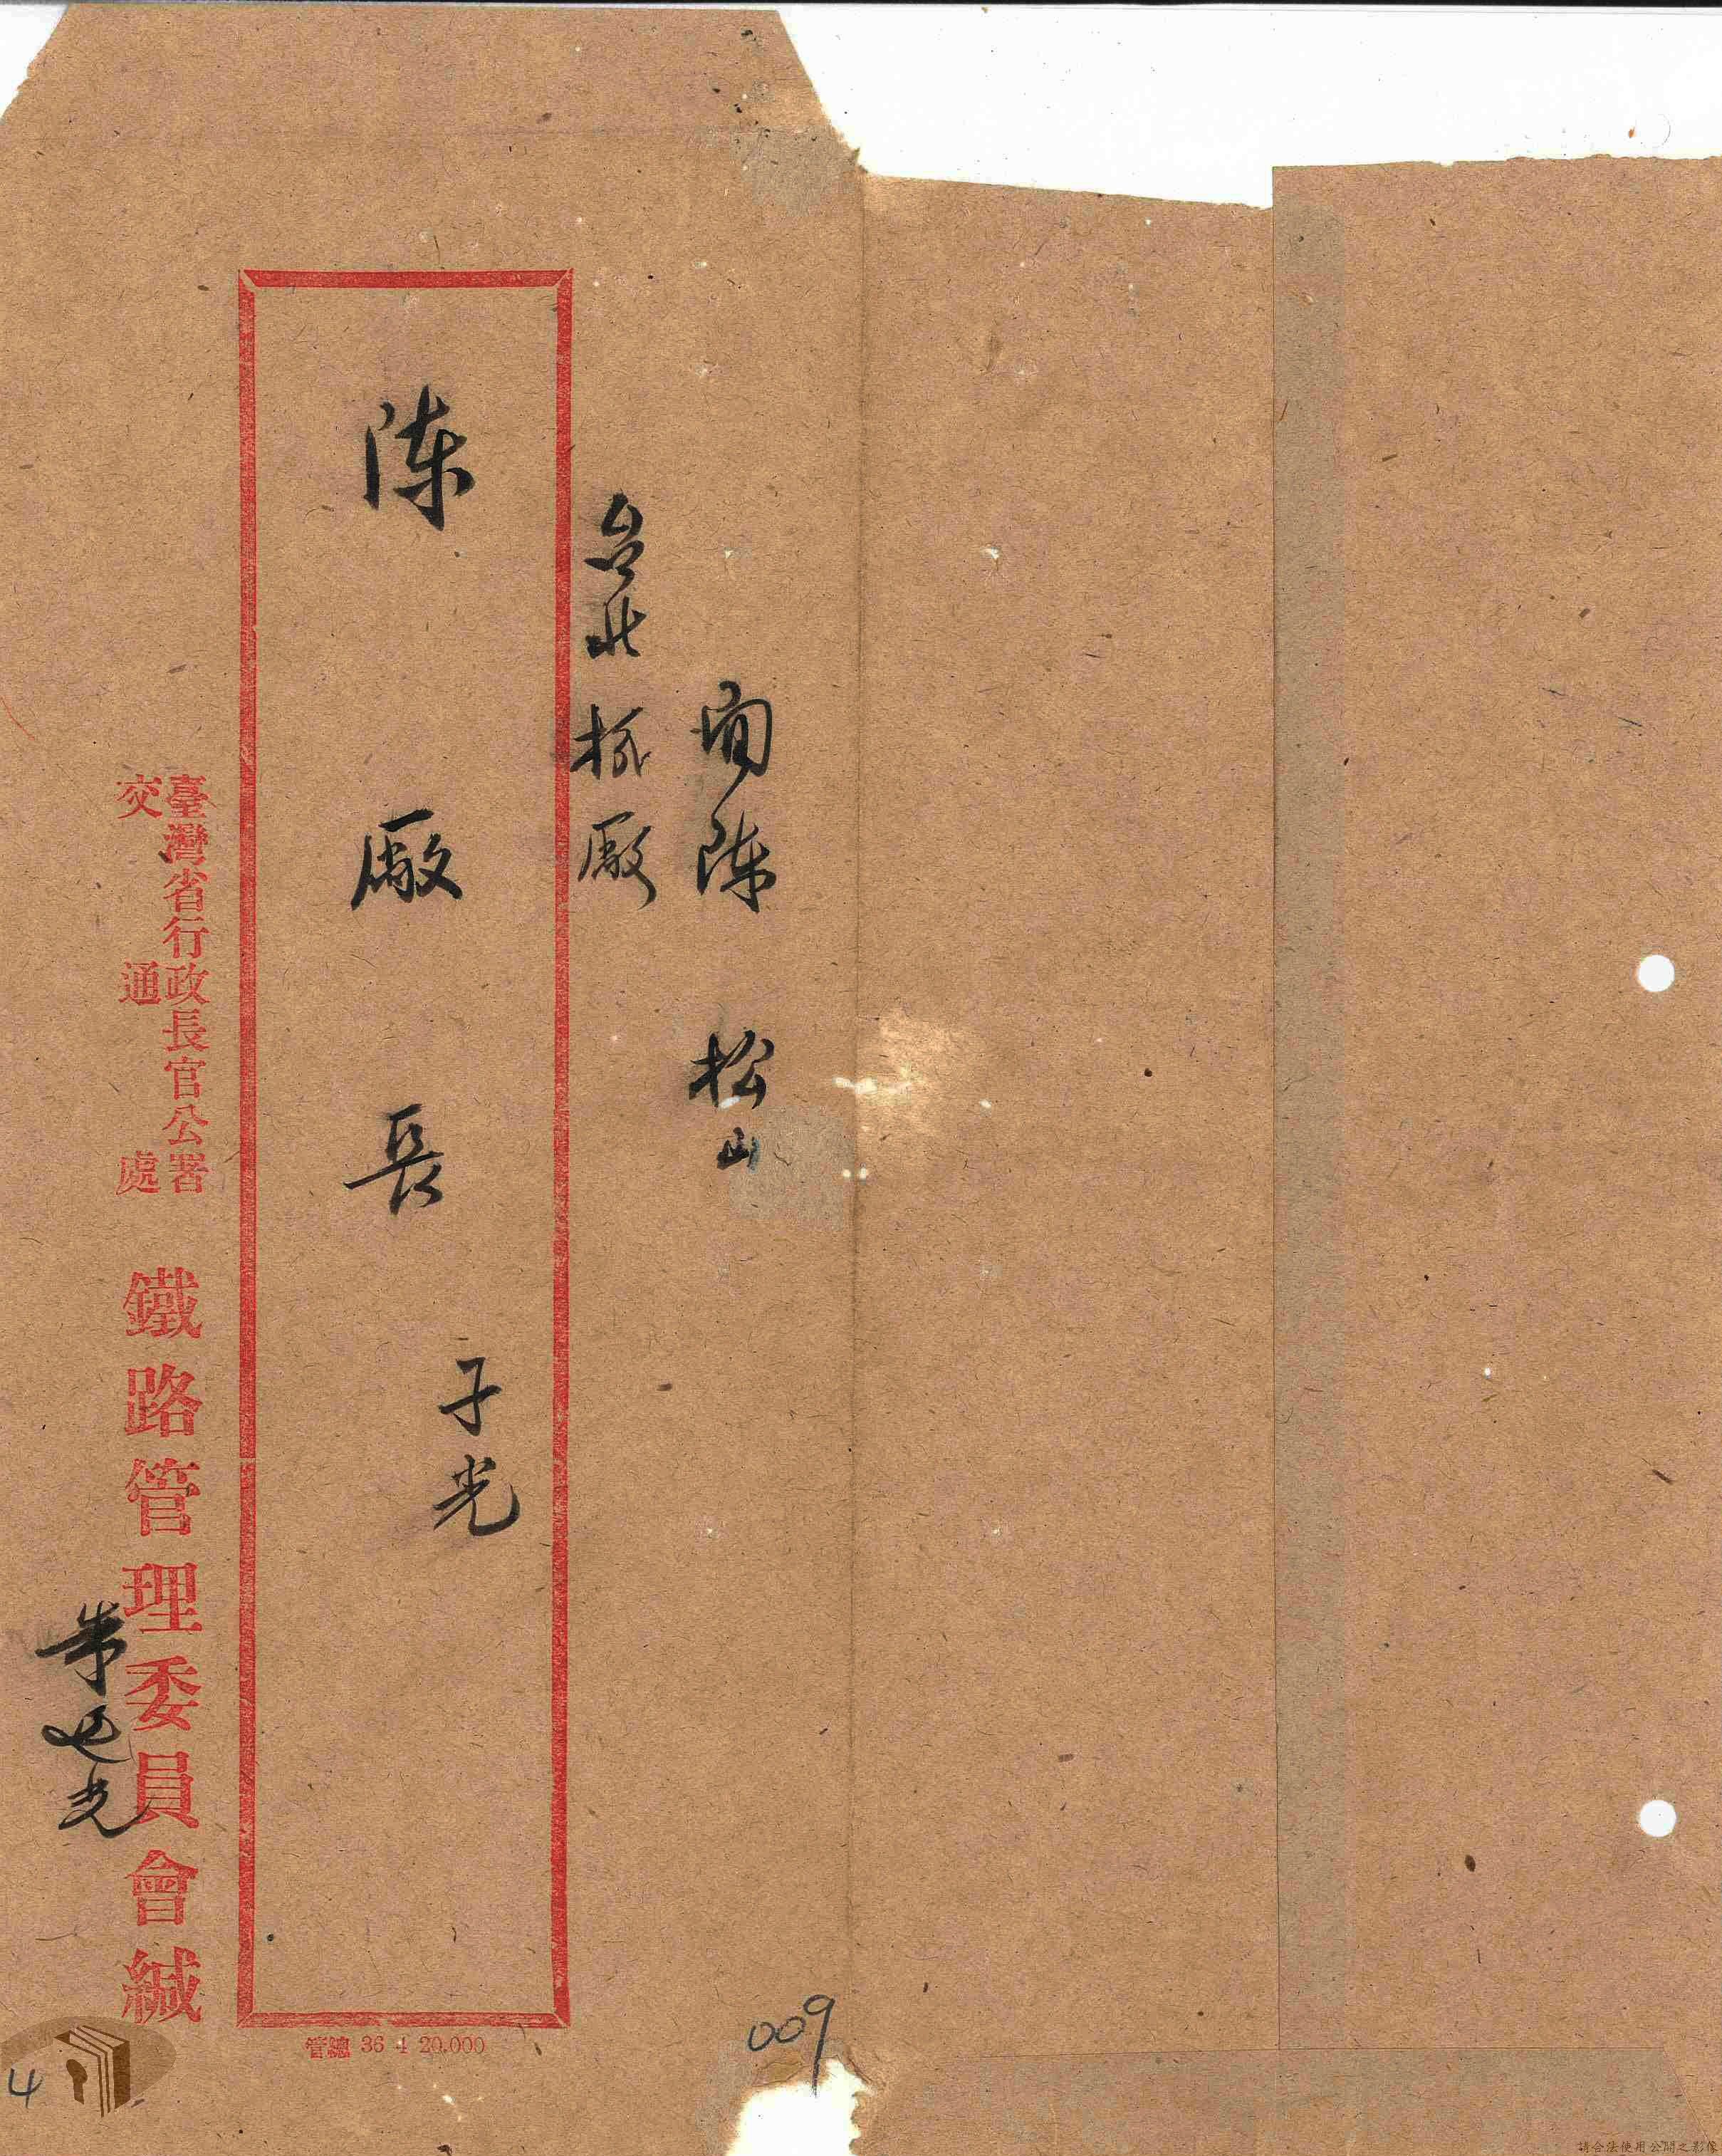 面陳　松山
台北機廠
陳廠長
子光
臺灣省行政長官公署
交通處
鐵路管理委員會緘
朱
光
管總 36 4 20.000
009
4
請合法使用公開之影像